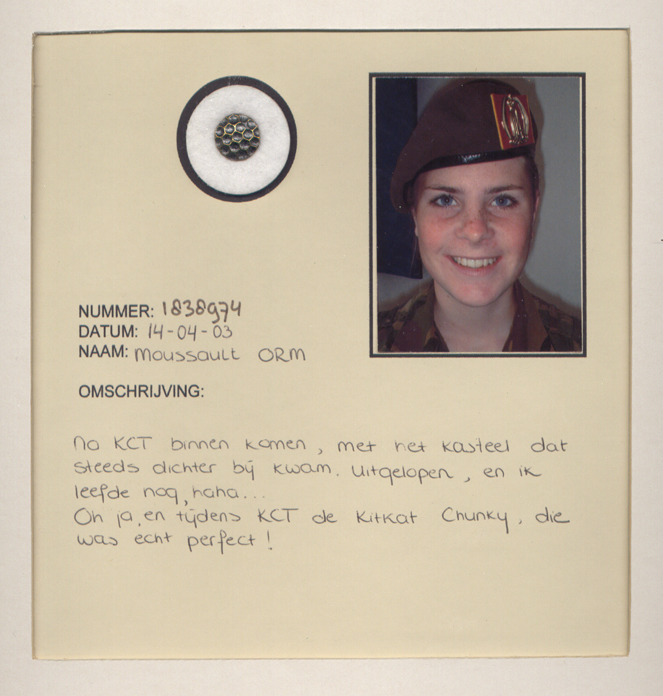 NUMMER: 1838974
DATUM: 14-04-03
NAAM: Moussault ORM
OMSCHRIJVING:
Na KCT binnen komen, met het kasteel dat
steeds dichter bij kwam. Uitgelopen, en ik
leefde nog, haha...
Oh ja, en tijdens KCT de KitKat Chunky, die
was echt perfect!